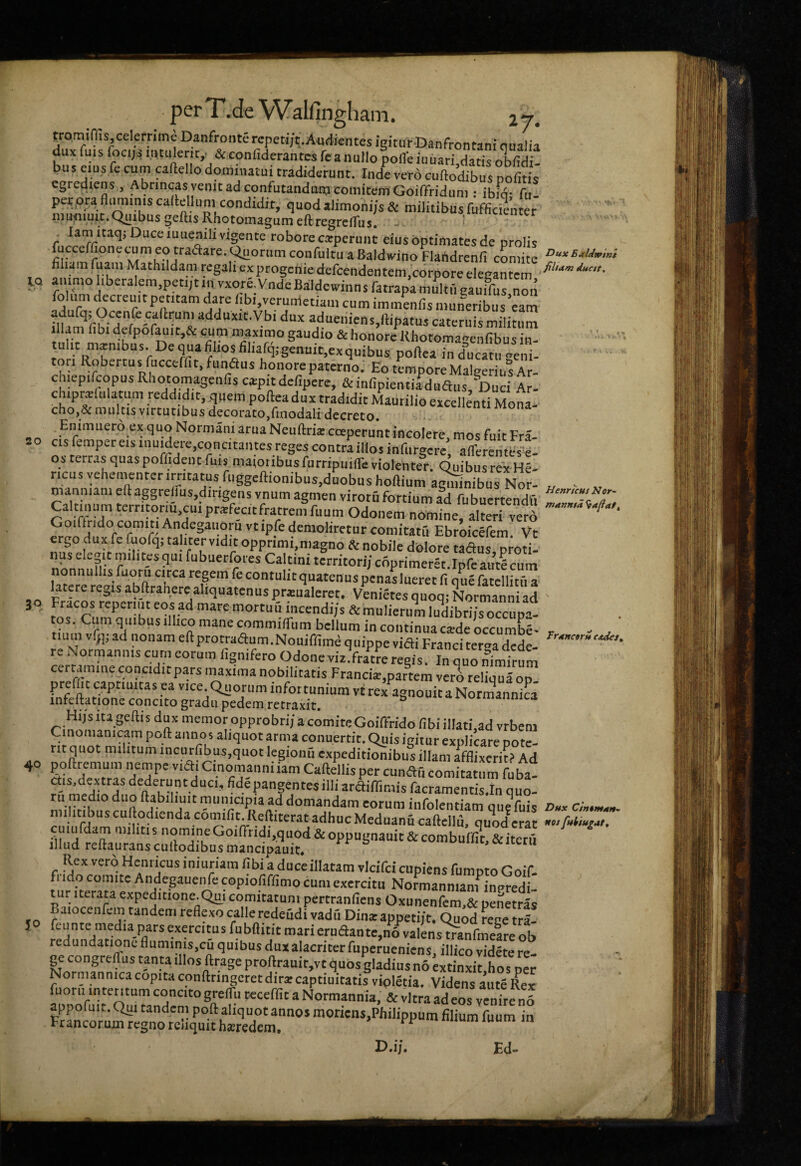 per T.de Walſingham. 27.
tromiſſis, celerrimè Danfrontē repetijt. Audientes igitur Danfrontani qualia
dux ſuis ſocijs intulerit, & conſiderantes ſe a nullo poſſe iuuari, datis obſidi-
bus eius ſe cum caſtello dominatui tradiderunt. Inde verò cuſtodibus poſitis
egrediens, Abrincas venit ad confutandum comitem Goiffridum : ibiq; ſu-
per ora fluminis caſtellum condidit, quod alimonijs & militibus ſufficienter
muniuit. Quibus geſtis Rhotomagum eſt regreſſus.
Iam itaq; Duce iuuenili vigente robore cæperunt eius optimates de prolis
ſucceſſione cum eo tractare. Quorum conſultu a Baldwino Flandrenſi comite Dux Baldwini
filiam ſuam Mathildam regali ex progenie deſcendentem, corpore elegantem filiam ducit.
10 animo liberalem, petijt in vxorē. Vnde Baldewinns ſatrapa multū gauiſus, non
ſolum decreuit petitam dare ſibi, verumetiam cum immenſis muneribus eam
aduſq; Ocenſe caſtrum adduxit. Vbi dux adueniens, ſtipatus cateruis militum
illam ſibi deſpoſauit, & cum maximo gaudio & honore Rhotomagenſibus in-
tulit mænibus. De qua filios filiaſq; genuit, ex quibus poſtea in ducatu geni-
tori Robertus ſucceſſit, functus honore paterno. Eo tempore Malgerius Ar-
chiepiſcopus Rhotomagenſis cæpit deſipere, & inſipientia ductus, Duci Ar-
chipræſulatum reddidit, quem poſtea dux tradidit Maurilio excellenti Mona-
cho, & multis virtutibus decorato, ſinodali decreto.
Enimuerò ex quo Normāni arua Neuſtriæ cœperunt incolere, mos fuit Frā-
20 cis ſemper eis inuidere, concitantes reges contra illos inſurgere, aſſerentes e-
os terras quas poſſident ſuis maioribus ſurripuiſſe violenter. Quibus rex Hē-
ricus vehementer irritatus ſuggeſtionibus, duobus hoſtium agminibus Nor- Henricus Nor-
manniam eſt aggreſſus, dirigens vnum agmen virorū fortium ad ſubuertendū manniā vaſtat.
Caltinum territoriū, cui præfecit fratrem ſuum Odonem nomine, alteri verò
Goiffrido comiti Andegauorū vt ipſe demoliretur comitatū Ebroicēſem. Vt
ergo dux ſe ſuoſq; taliter vidit opprimi, magno & nobile dolore tactus, proti-
nus elegit milites qui ſubuerſores Caltini territorij cōprimerēt. Ipſe autē cum
nonnullis ſuorū circa regem ſe contulit quatenus penas lueret ſi quē ſatellitū a
latere regis abſtrahere aliquatenus præualeret. Veniētes quoq; Normanni ad
30 Frācos reperiūt eos ad mare mortuū incendijs & mulierum ludibrijs occupa-
tos. Cum quibus illico mane commiſſum bellum in continua cæde occumbē-
tium vſq; ad nonam eſt protractum. Nouiſſimè quippe victi Franci terga dede- Francorū cædes.
re Normannis cum eorum ſignifero Odone viz. fratre regis. In quo nimirum
certamine concidit pars maxima nobilitatis Franciæ, partem verò reliquā op-
preſſit captiuitas ea vice. Quorum infortunium vt rex agnouit a Normannica
infeſtatione concito gradu pedem retraxit.
Hijs ita geſtis dux memor opprobrij a comite Goiffrido ſibi illati, ad vrbem
Cinomanicam poſt annos aliquot arma conuertit. Quis igitur explicare pote-
rit quot militum incurſibus, quot legionū expeditionibus illam afflixerit? Ad
40 poſtremum nempe victi Cinomanni iam Caſtellis per cunctū comitatum ſuba-
ctis, dextras dederunt duci, fidē pangentes illi arctiſſimis ſacramentis. In quo-
rū medio duo ſtabiliuit municipia ad domandam eorum inſolentiam que ſuis Dux Cinoman-
militibus cuſtodienda cōmiſit. Reſtiterat adhuc Meduanū caſtellū, quod erat nos ſubiugat.
cuiuſdam militis nomine Goiffridi, quod & oppugnauit & combuſſit, & iterū
illud reſtaurans cuſtodibus mancipauit.
Rex verò Henricus iniuriam ſibi a duce illatam vlciſci cupiens ſumpto Goif-
frido comite Andegauenſe copioſiſſimo cum exercitu Normanniam ingredi-
tur iterata expeditione. Qui comitatum pertranſiens Oxunenſem, & penetrās
Baiocenſem tandem reflexo calle redeūdi vadū Dinæ appetijt. Quod rege trā-
50 ſeunte media pars exercitus ſubſtitit mari eructante, nō valens tranſmeare ob
redundatione fluminis, cū quibus dux alacriter ſuperueniens, illico vidēte re-
ge congreſſus tanta illos ſtrage proſtrauit, vt quos gladius nō extinxit, hos per
Normannica copita conſtringeret diræ captiuitatis violētia. Videns autē Rex
ſuorū interitum concito greſſu receſſit a Normannia, & vltra ad eos venire nō
appoſuit. Qui tandem poſt aliquot annos moriens, Philippum filium ſuum in
Francorum regno reliquit hæredem.
D.ij. Ed-